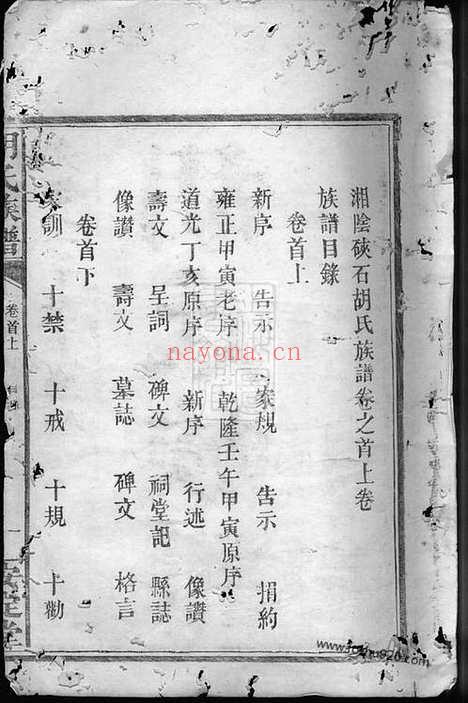 湘陰硤石胡氏族譜卷之首上卷
族譜目錄
卷首上
新序 告示 家規 告示 捐約
雍正甲寅老序 乾隆壬午甲寅原序
道光丁亥原序 新序 行述 像讚
壽文 呈詞 碑文 祠堂記 縣誌
像讚 壽文 墓誌 碑文 格言
卷首下
訓 十禁 十戒 十規 十勸
氏族譜
卷首上
堂
nayona.cn